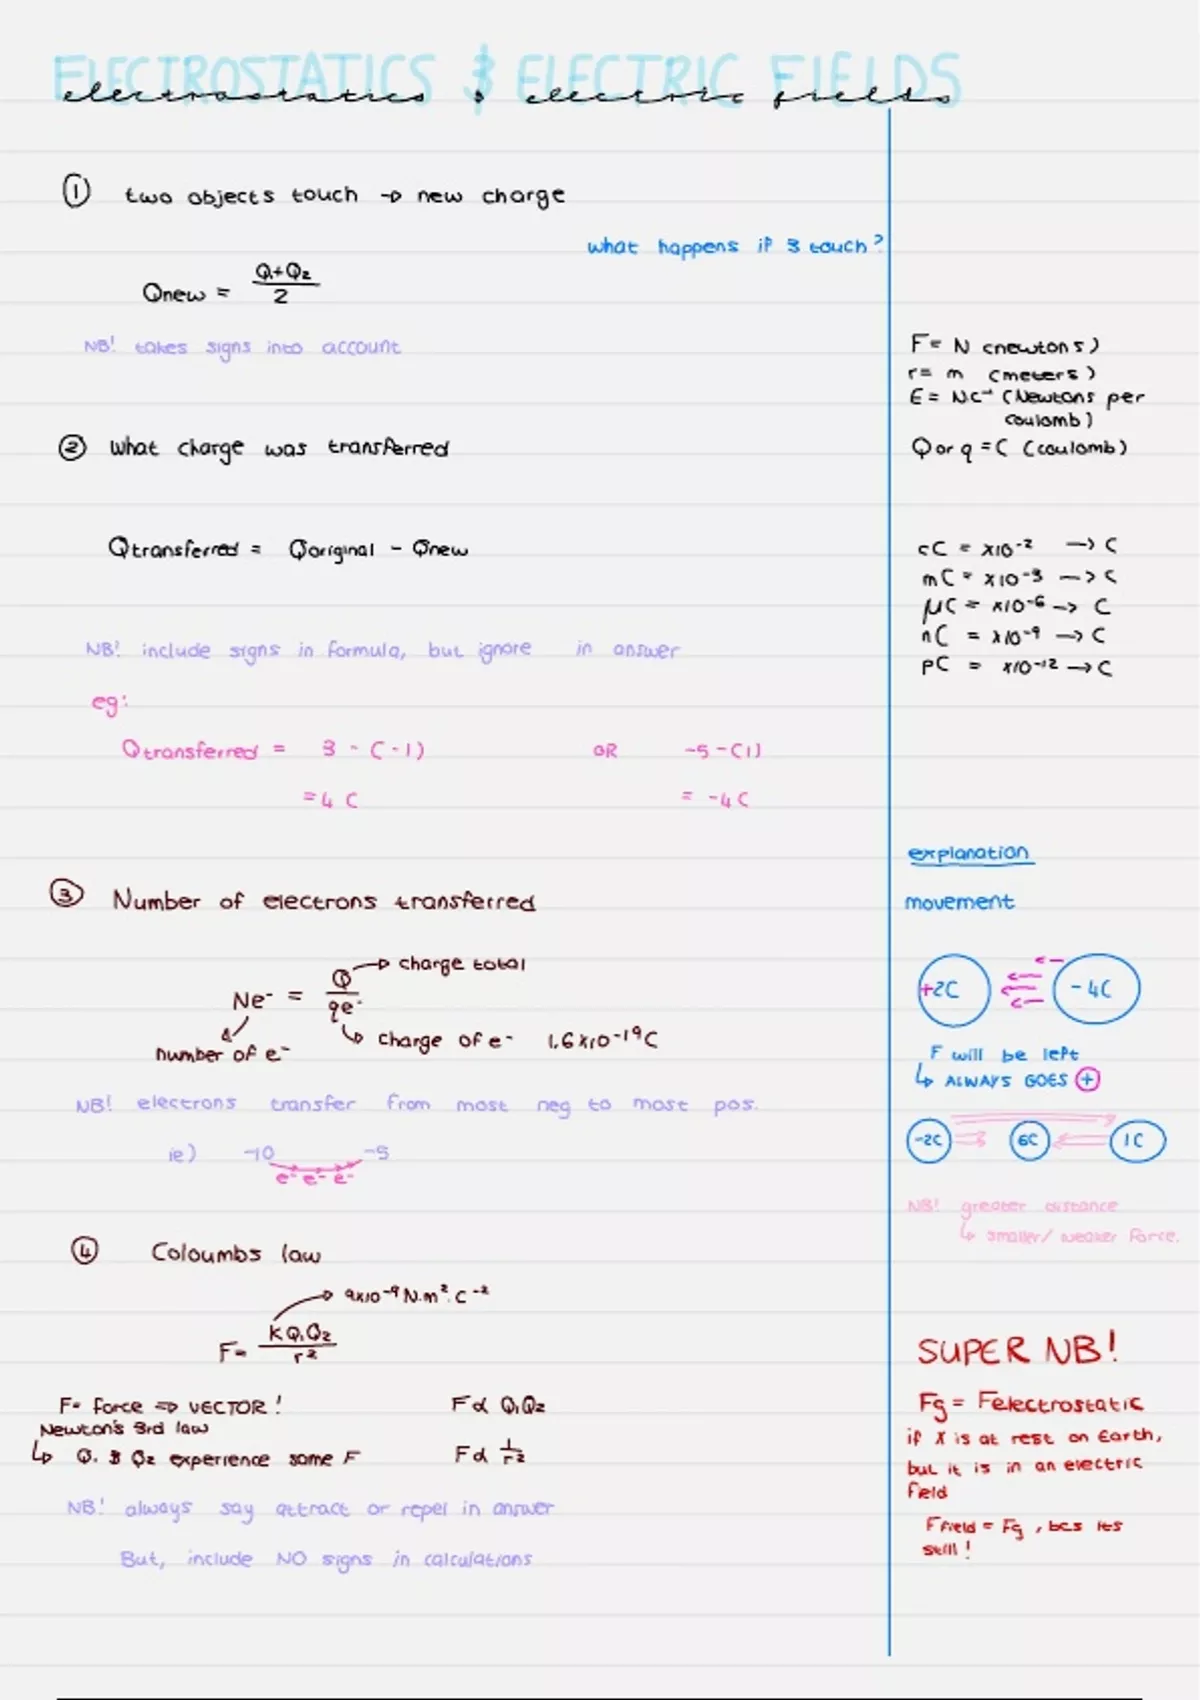 ELECTROSTATICS & ELECTRIC FIELDS
electrostatics & electric fields
① two objects touch → new charge
what happens if 3 touch?
Qnew = Q1+Q2 / 2
NB! takes signs into account
② What charge was transferred
Qtransferred = Qoriginal - Qnew
NB! include signs in formula, but ignore in answer
eg:
Qtransferred = 3 - (-1) OR -5-(1)
= 4 C = -4C
③ Number of electrons transferred
Ne⁻ = Q / qe⁻
→ charge total
↳ charge of e⁻ 1.6x10⁻¹⁹C
number of e⁻
NB! electrons transfer from most neg to most pos.
ie) -10 -5
e⁻ e⁻ e⁻
④ Coloumbs law
→ 9x10⁻⁹ N.m².C⁻²
F= kQ1Q2 / r²
F= force ⇒ VECTOR! F∝ Q1Q2
Newton's 3rd law
↳ Q1 & Q2 experience same F F∝ 1/r²
NB! always say attract or repel in answer
But, include NO signs in calculations
F= N (newtons)
r= m (meters)
E= N.C⁻¹ (Newtons per
coulomb)
Q or q = C (coulomb)
cC = x10⁻² → C
mC = x10⁻³ → C
μC = x10⁻⁶ → C
nC = x10⁻⁹ → C
pC = x10⁻¹² → C
explanation
movement
+2C -4C
F will be left
↳ ALWAYS GOES ⊕
-2C 6C 1C
NB! greater distance
↳ smaller/weaker force.
SUPER NB!
Fg = Felectrostatic
if X is at rest on Earth,
but it is in an electric
field
Ffield = Fg, bcs its
still!